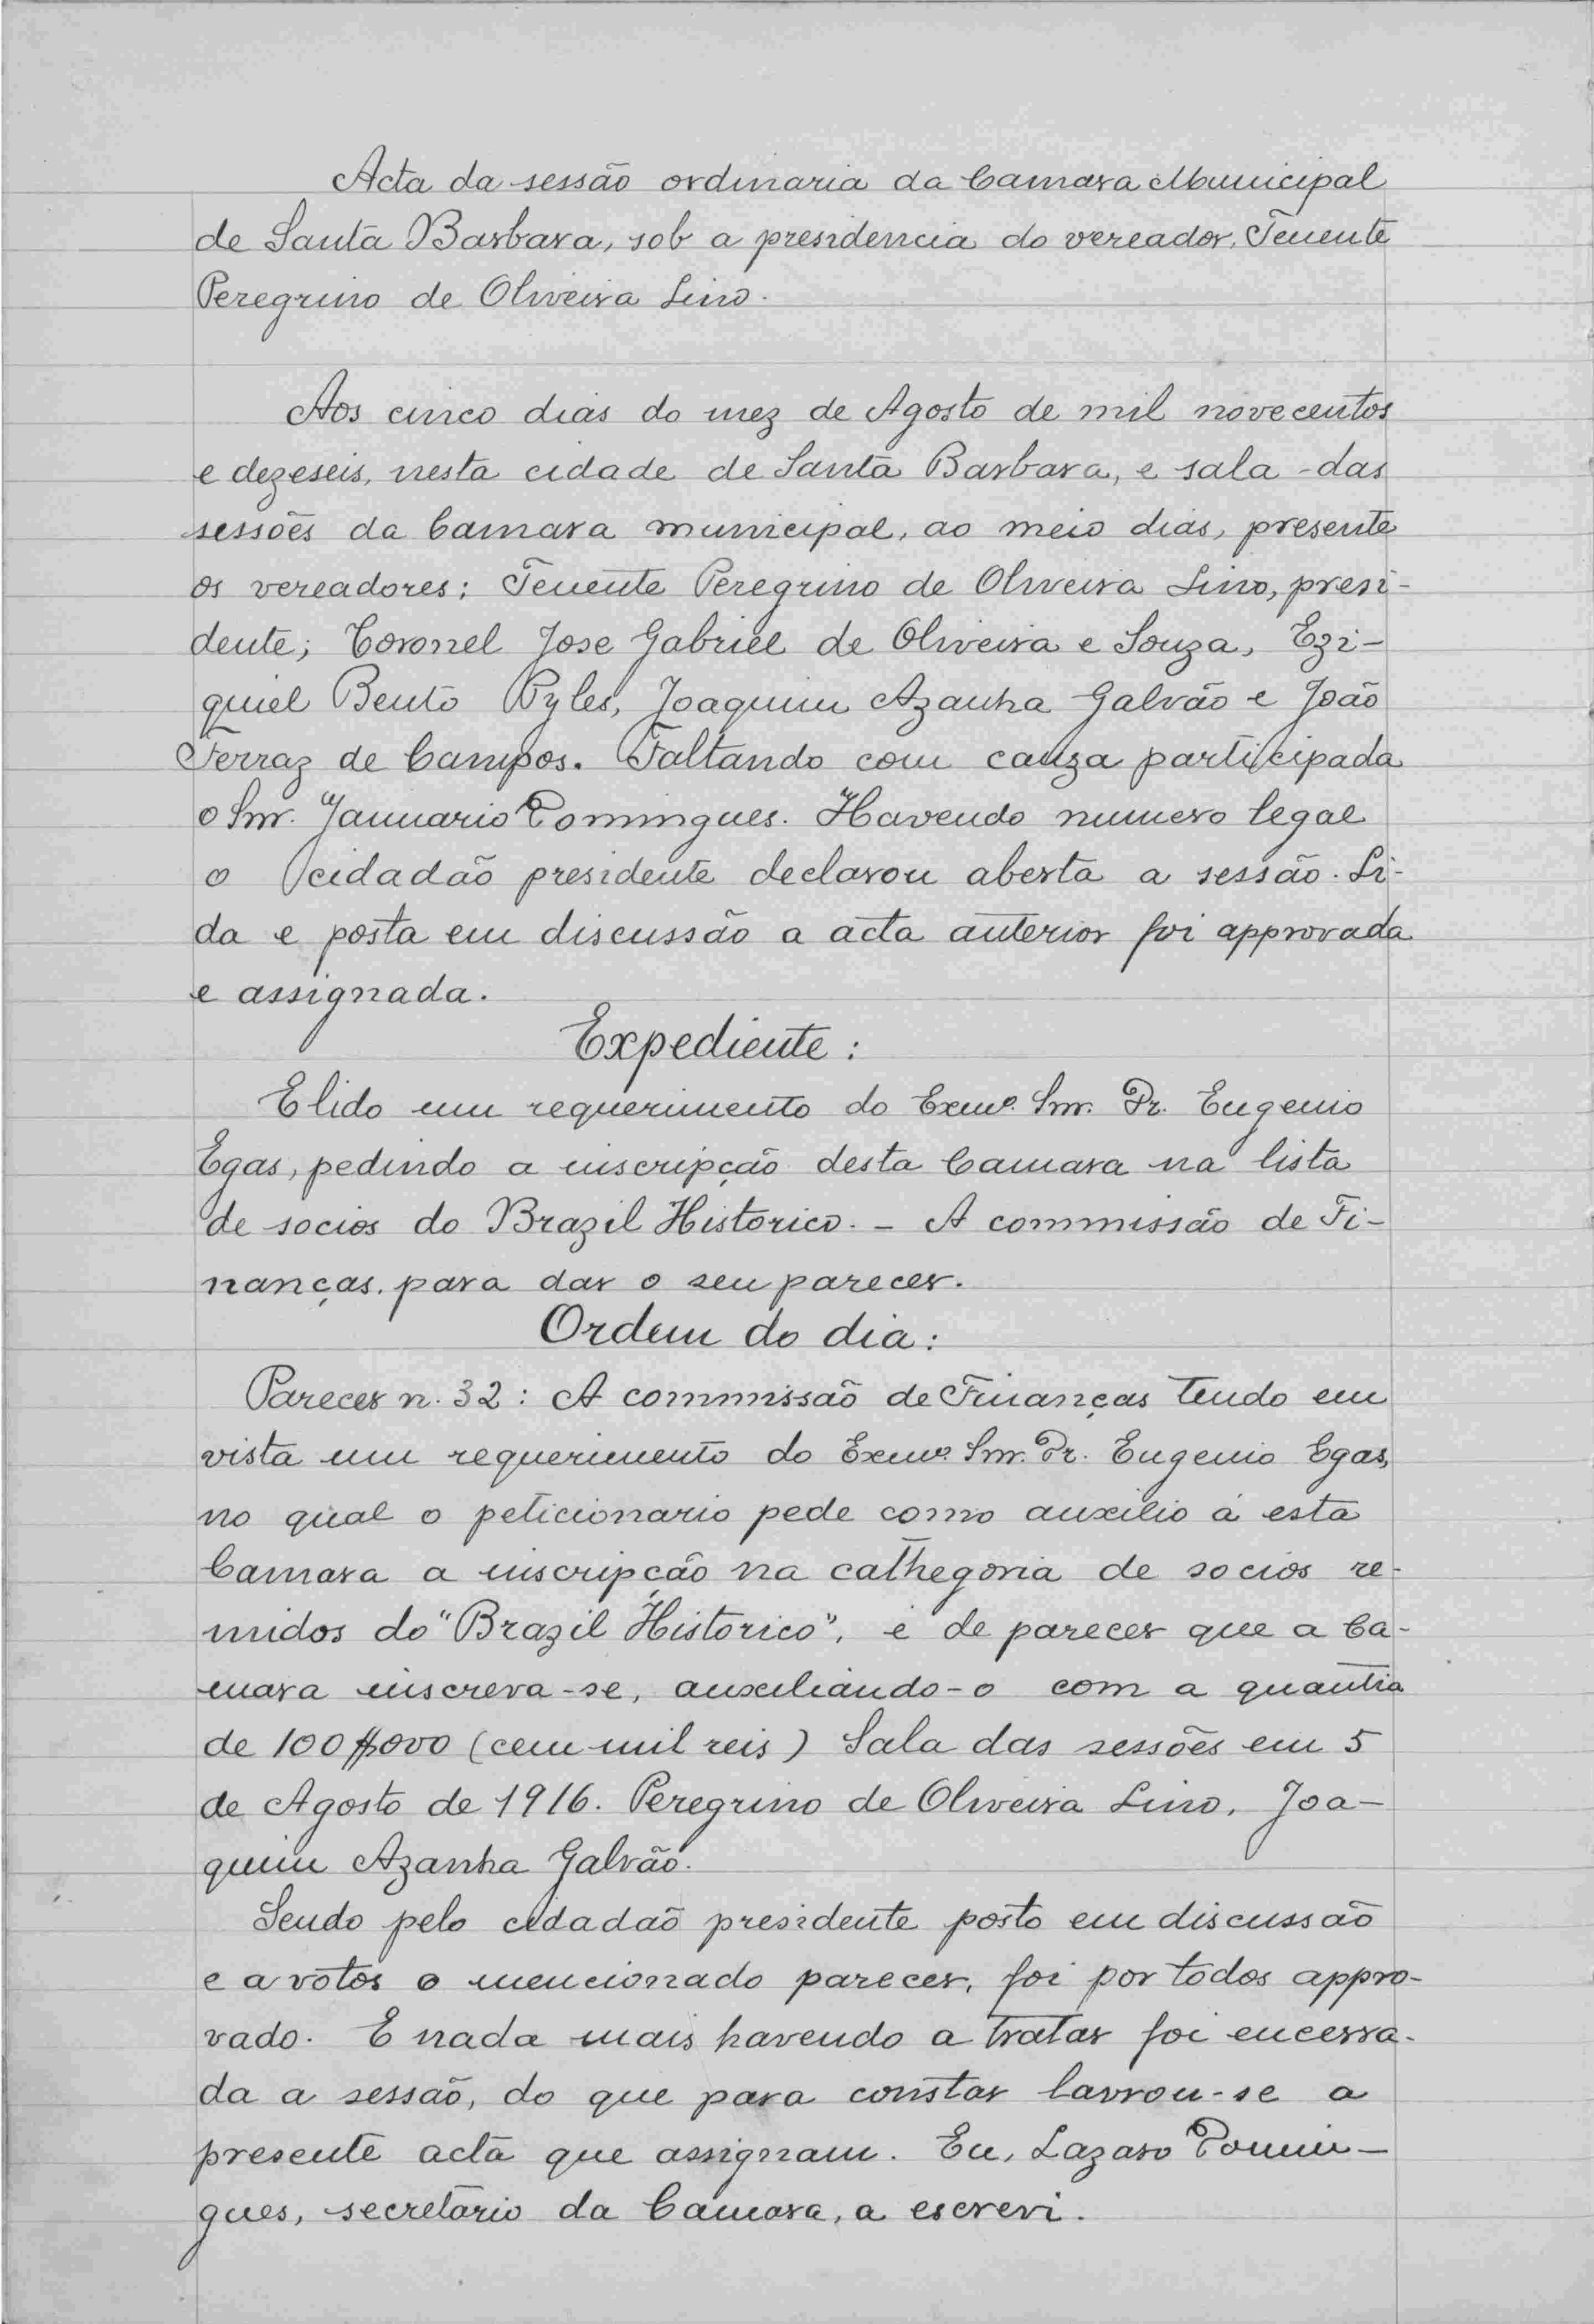 Acta da sessão ordinaria da Camara Municipal
de Santa Barbara, sob a presidencia do vereador, Tenente
Peregrino de Oliveira Lino.
Aos cinco dias do mez de Agosto de mil novecentos
e dezeseis, nesta cidade de Santa Barbara, e sala das
sessões da Camara municipal, ao meio dias, presente
os vereadores: Tenente Peregrino de Oliveira Lino, presi-
dente; Coronel Jose Gabriel de Oliveira e Souza, Ezi-
quiel Bento Pyles, Joaquim Azanha Galvão e João
Ferraz de Campos. Faltando com cauza participada
o Snr. Januario Domingues. Havendo numero legal
o cidadão presidente declarou aberta a sessão. Li-
da e posta em discussão a acta anterior foi approvada
e assignada.
Expediente:
E lido um requerimento do Exmo. Snr. Dr. Eugenio
Egas, pedindo a inscripção desta Camara na lista
de socios do Brazil Historico. - A commissão de Fi-
nanças, para dar o seu parecer.
Ordem do dia:
Parecer n. 32: A commissão de Finanças tendo em
vista um requerimento do Exmo. Snr. Dr. Eugenio Egas,
no qual o peticionario pede como auxilio á esta
Camara a inscripção na cathegoria de socios re-
midos do "Brazil Historico", é de parecer que a Ca-
mara inscreva-se, auxiliando-o com a quantia
de 100$000 (cem mil reis) Sala das sessões em 5
de Agosto de 1916. Peregrino de Oliveira Lino, Joa-
quim Azanha Galvão.
Sendo pelo cidadão presidente posto em discussão
e a votos o mencionado parecer, foi por todos appro-
vado. E nada mais havendo a tratar foi encerra-
da a sessão, do que para constar lavrou-se a
presente acta que assignam. Eu, Lazaro Domin-
gues, secretario da Camara, a escrevi.